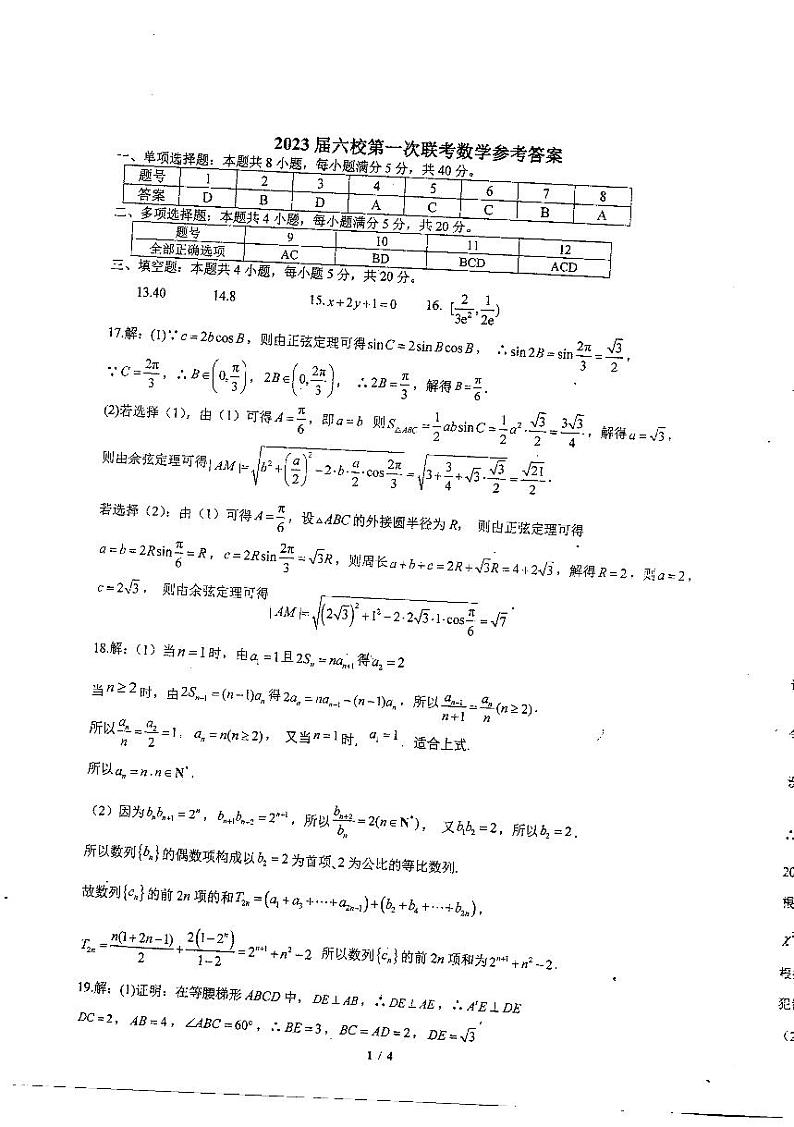 2023 届六校第一次联考数学参考答案
一、单项选择题：本题共 8 小题，每小题满分 5 分，共 40 分。
题号 1 2 3 4 5 6 7 8
答案 D B D A C C B A
二、多项选择题：本题共 4 小题，每小题满分 5 分，共 20 分。
题号 9 10 11 12
全部正确选项 AC BD BCD ACD
三、填空题：本题共 4 小题，每小题 5 分，共 20 分。
13.40 14.8 15. x+2y+1=0 16. [2/(3e²), 1/(2e))
17.解：(1)∵c=2bcosB，则由正弦定理可得sinC=2sinBcosB， ∴sin2B=sin2π/3=√3/2，
∵C=2π/3，∴B∈(0,π/3)，2B∈(0,2π/3)， ∴2B=π/3，解得B=π/6.
(2)若选择（1），由（1）可得A=π/6，即a=b 则S△ABC=1/2absinC=1/2a²·√3/2=3√3/4，解得a=√3，
则由余弦定理可得|AM|=√(b²+(a/2)²-2·b·a/2·cos2π/3)=√(3+3/4+√3·√3/2)=√21/2.
若选择（2）：由（1）可得A=π/6，设△ABC的外接圆半径为 R， 则由正弦定理可得
a=b=2Rsinπ/6=R，c=2Rsin2π/3=√3R，则周长a+b+c=2R+√3R=4+2√3，解得R=2，则a=2，
c=2√3， 则由余弦定理可得
|AM|=√((2√3)²+1²-2·2√3·1·cosπ/6)=√7
18.解：（1）当n=1时，由a₁=1且2Sₙ=naₙ₊₁得a₂=2
当n≥2时，由2Sₙ₋₁=(n-1)aₙ得2aₙ=naₙ₊₁-(n-1)aₙ，所以aₙ₊₁/(n+1)=aₙ/n(n≥2).
所以aₙ/n=a₂/2=1，aₙ=n(n≥2)， 又当n=1时，a₁=1．适合上式.
所以aₙ=n.n∈N*.
（2）因为bₙbₙ₊₁=2ⁿ，bₙ₊₁bₙ₊₂=2ⁿ⁺¹，所以bₙ₊₂/bₙ=2(n∈N*)， 又b₁b₂=2，所以b₂=2．
所以数列{bₙ}的偶数项构成以b₂=2为首项、2为公比的等比数列.
故数列{cₙ}的前 2n 项的和T₂ₙ=(a₁+a₃+⋯+a₂ₙ₋₁)+(b₂+b₄+⋯+b₂ₙ)，
T₂ₙ=n(1+2n-1)/2+2(1-2ⁿ)/(1-2)=2ⁿ⁺¹+n²-2 所以数列{cₙ}的前 2n 项和为2ⁿ⁺¹+n²-2.
19.解：(1)证明：在等腰梯形 ABCD 中， DE⊥AB，∴DE⊥AE，∴A'E⊥DE
DC=2，AB=4，∠ABC=60°，∴BE=3，BC=AD=2，DE=√3
1 / 4